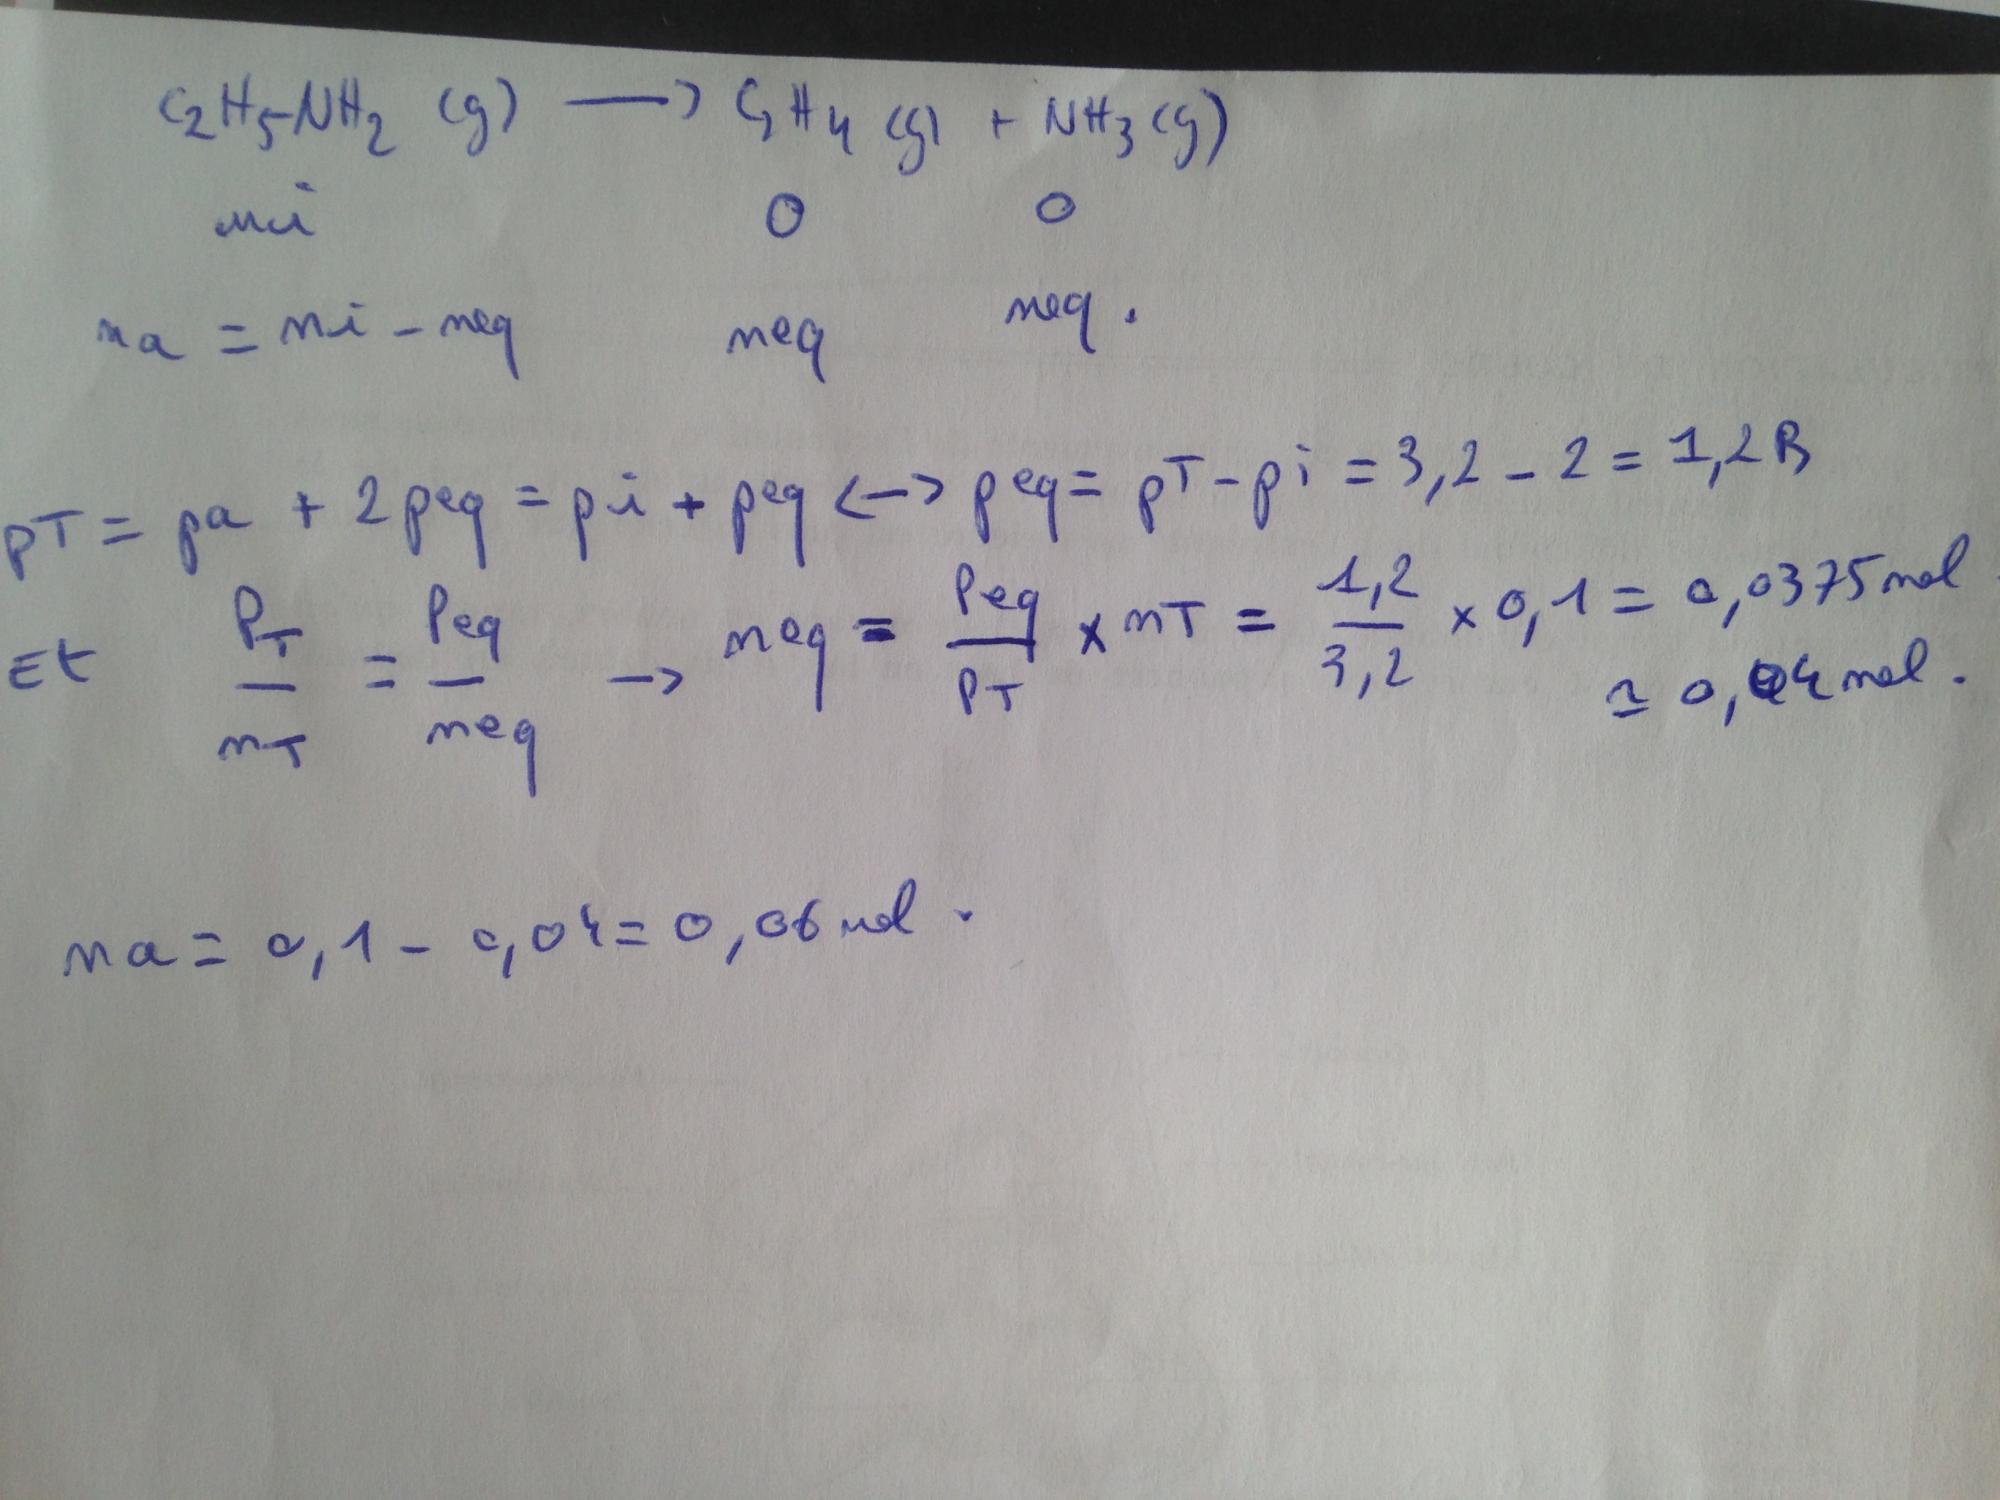 C2H5-NH2 (g) → C2H4 (g) + NH3 (g)
ni 0 0
na = ni - neq neq neq.
pT = pa + 2peq = pi + peq <-> peq = pT - pi = 3,2 - 2 = 1,2 B
Et PT/nT = Peq/neq → neq = Peq/PT × nT = 1,2/3,2 × 0,1 = 0,0375 mol
≃ 0,04 mol.
na = 0,1 - 0,04 = 0,06 mol.